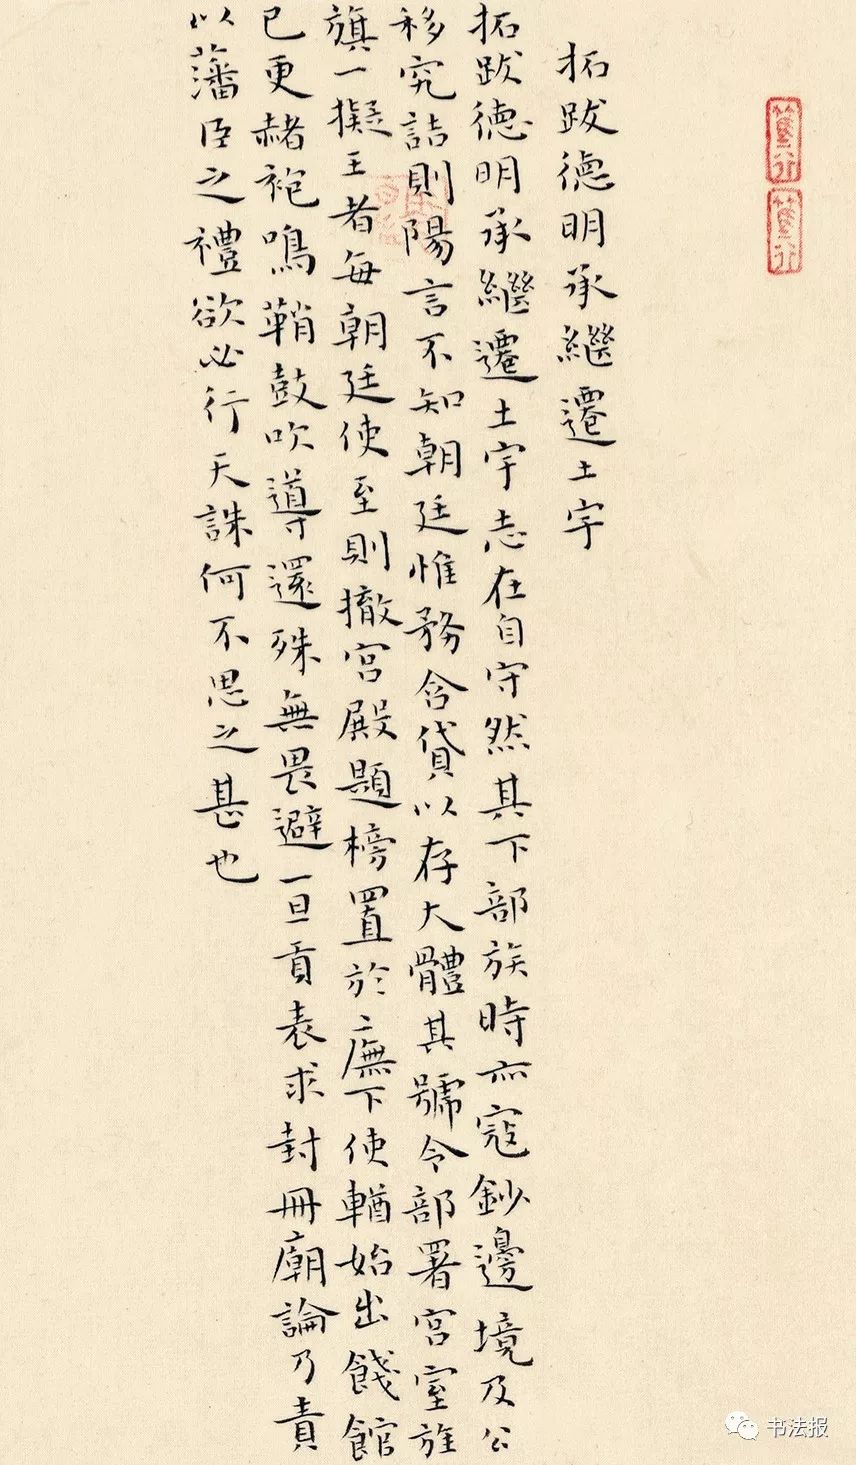 拓跋德明承繼遷土宇
拓跋德明承繼遷土宇志在自守然其下部族時亦寇鈔邊境及公
移究詰則陽言不知朝廷惟務含貸以存大體其號令部署宮室旌
旗一擬王者每朝廷使至則撤宮殿題榜置於廡下使輶始出餞館
已更赭袍鳴鞘鼓吹導還殊無畏避一旦貢表求封冊廟論乃責
以藩臣之禮欲必行天誅何不思之甚也
书法报